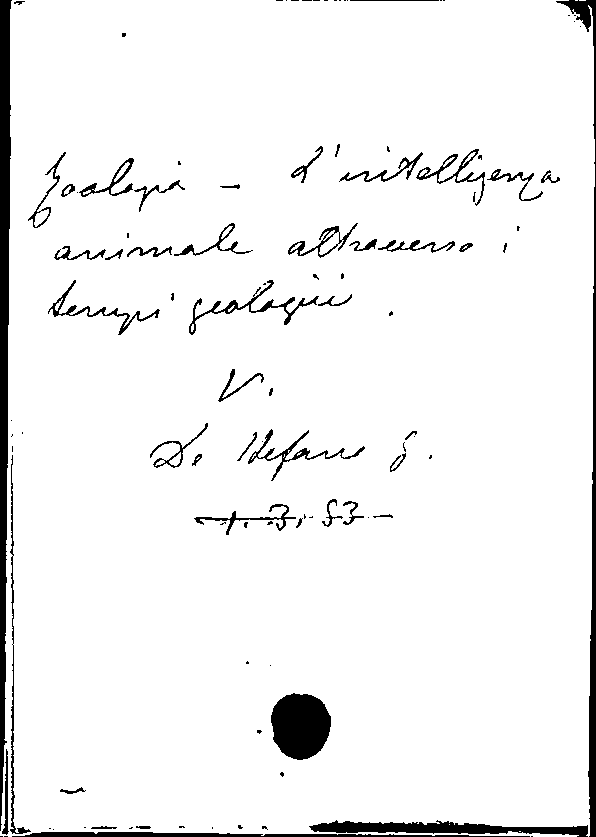 Zoologia - L'intelligenza
animale attraverso i
tempi geologici.
V.
De Stefano G.
1.3.83